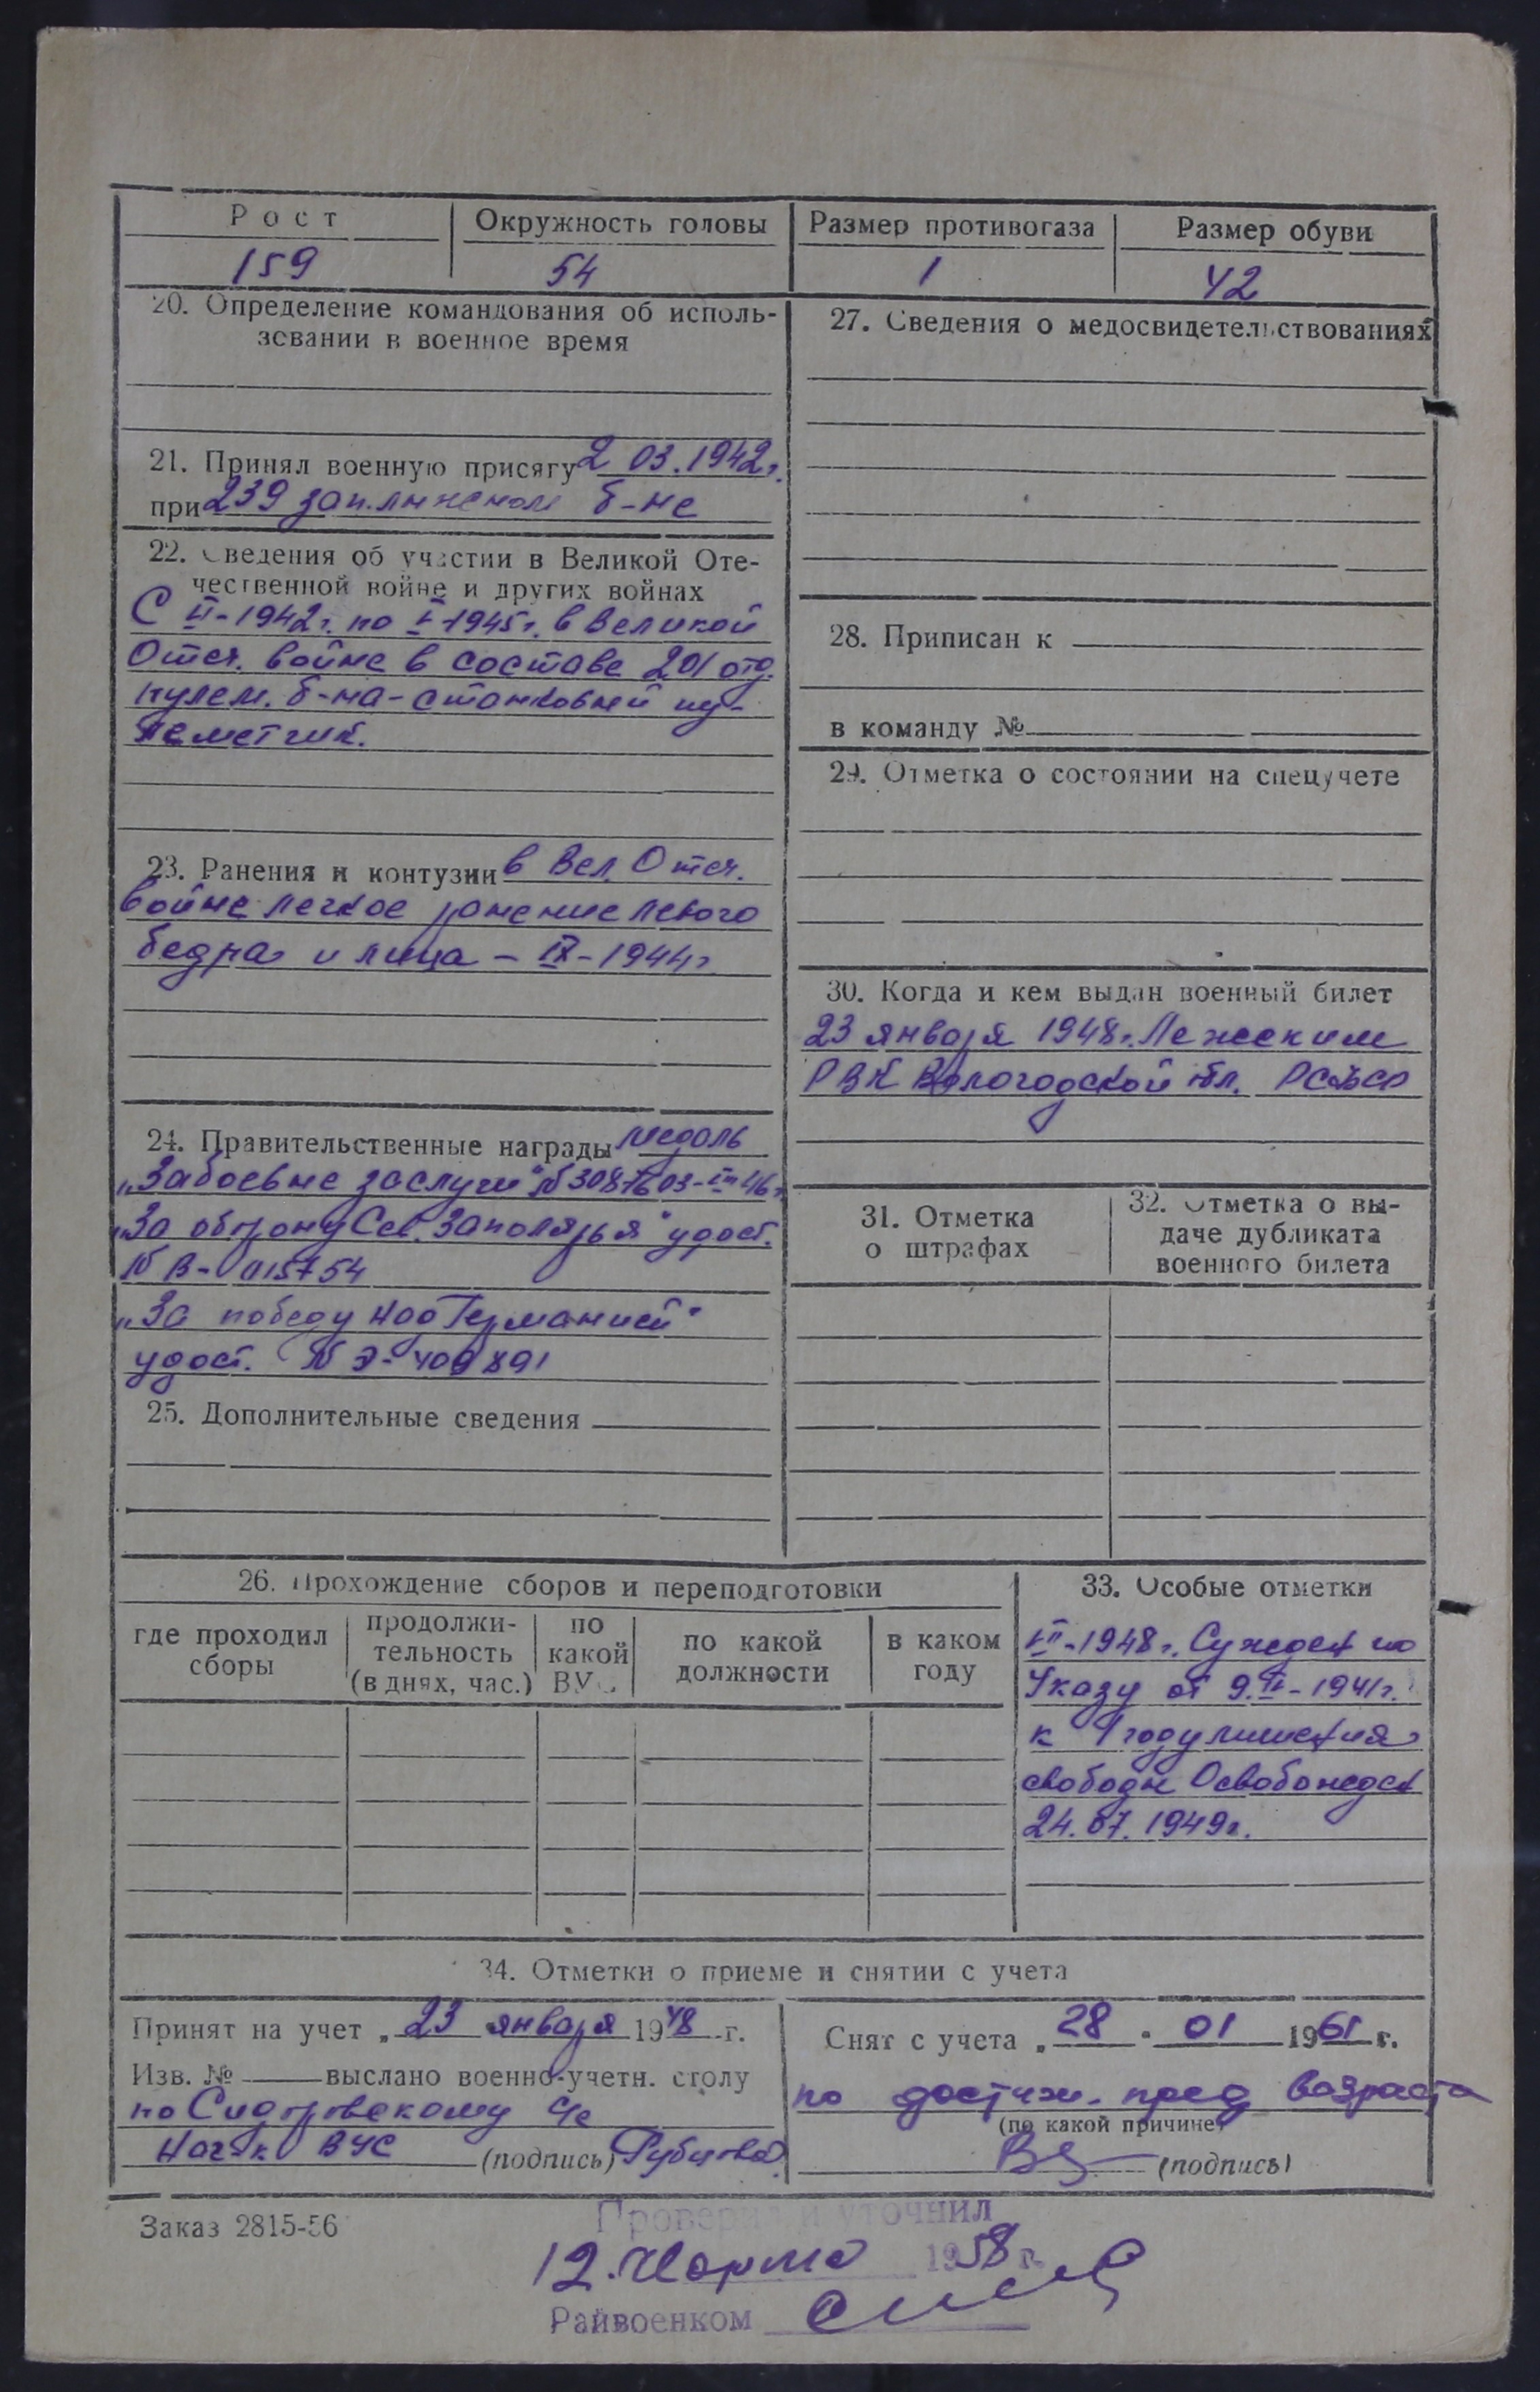 Рост
Окружность головы
Размер противогаза
Размер обуви
159
54
1
42
20. Определение командования об исполь-
зовании в военное время
21. Принял военную присягу 2 03.1942г.
при 239 зап.лыжном б-не
22. Сведения об участии в Великой Оте-
чественной войне и других войнах
С II-1942г. по V-1945г. в Великой
Отеч. войне в составе 201 отд.
пулем. б-на - станковый пу-
леметчик.
23. Ранения и контузии в Вел. Отеч.
войне легкое ранение левого
бедра и лица - IX-1944г.
24. Правительственные награды медаль
„За боевые заслуги"
„За оборону Сов. Заполярья" удост.
№ В-015754
„За победу над Германией"
удост. № Э-
25. Дополнительные сведения
27. Сведения о медосвидетельствованиях
28. Приписан к
в команду №
29. Отметка о состоянии на спецучете
30. Когда и кем выдан военный билет
23 января 1948г. Лежским
РВК Вологодской обл. РСФСР
31. Отметка
о штрафах
32. Отметка о вы-
даче дубликата
военного билета
26. Прохождение сборов и переподготовки
где проходил
сборы
продолжи-
тельность
(в днях, час.)
по
какой
ВУС
по какой
должности
в каком
году
33. Особые отметки
1948г. Сужден по
Указу от 1941г.
к 1 году лишения
свободы Освобожден
24.07.1949г.
34. Отметки о приеме и снятии с учета
Принят на учет „ 23 января 1948 г.
Изв. № выслано военно-учетн. столу
по Сидоровскому с/с
Нач-к ВУС (подпись) Рубцова
Снят с учета „ 28 " 01 1961 г.
по достиж. пред возраста
(по какой причине)
(подпись)
Заказ 2815-56
Проверил и уточнил
12. Марта 1958 г.
Райвоенком